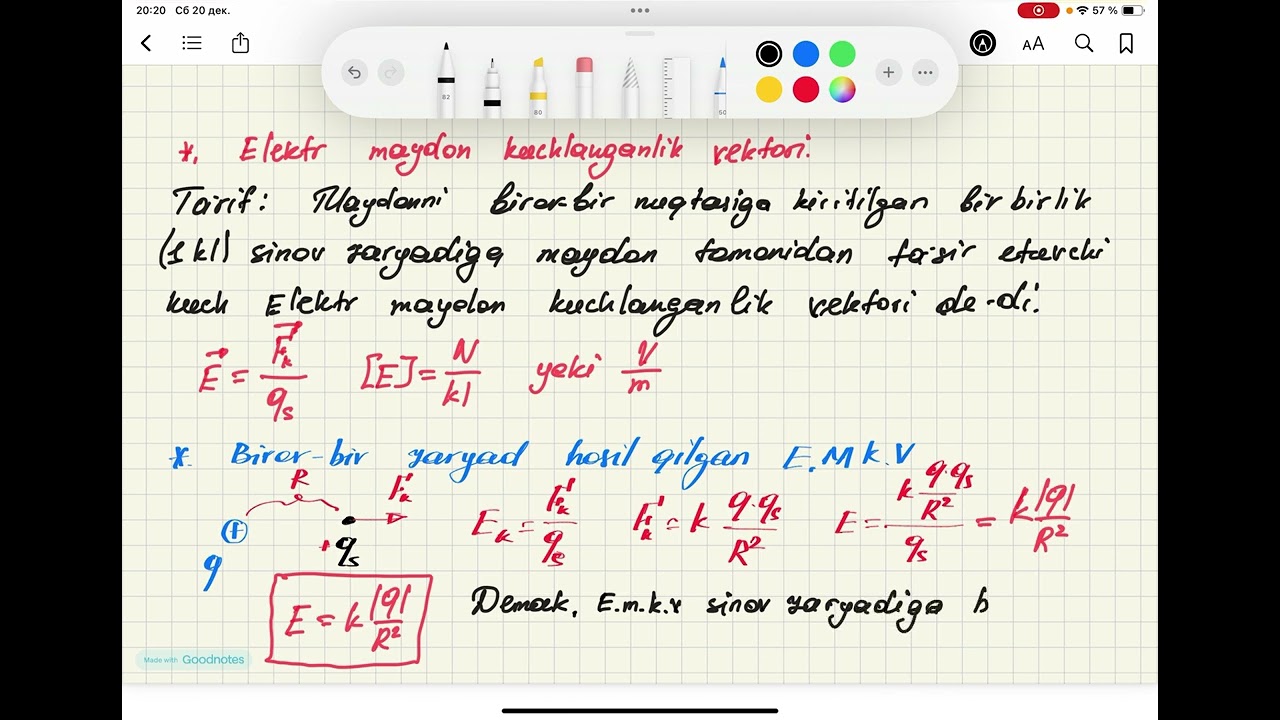 20:20 Сб 20 дек.
57 %
AA
82
80
50
*. Elektr maydon kuchlanganlik vektori.
Ta'rif: Maydonni biror-bir nuqtasiga kiritilgan bir birlik
(1 kl) sinov zaryadiga maydon tomonidan ta'sir etuvchi
kuch Elektr maydon kuchlanganlik vektori de-di.
E⃗ = F⃗k/qs [E] = N/kl yoki V/m
*. Biror-bir zaryad hosil qilgan E.M.k.V
R Fk Ek = Fk/qs Fk = k q·qs/R² E = (k q·qs/R²)/qs = k|q|/R²
+ q + qs
E = k|q|/R² Demak, E.m.k.v sinov zaryadiga b
Made with Goodnotes